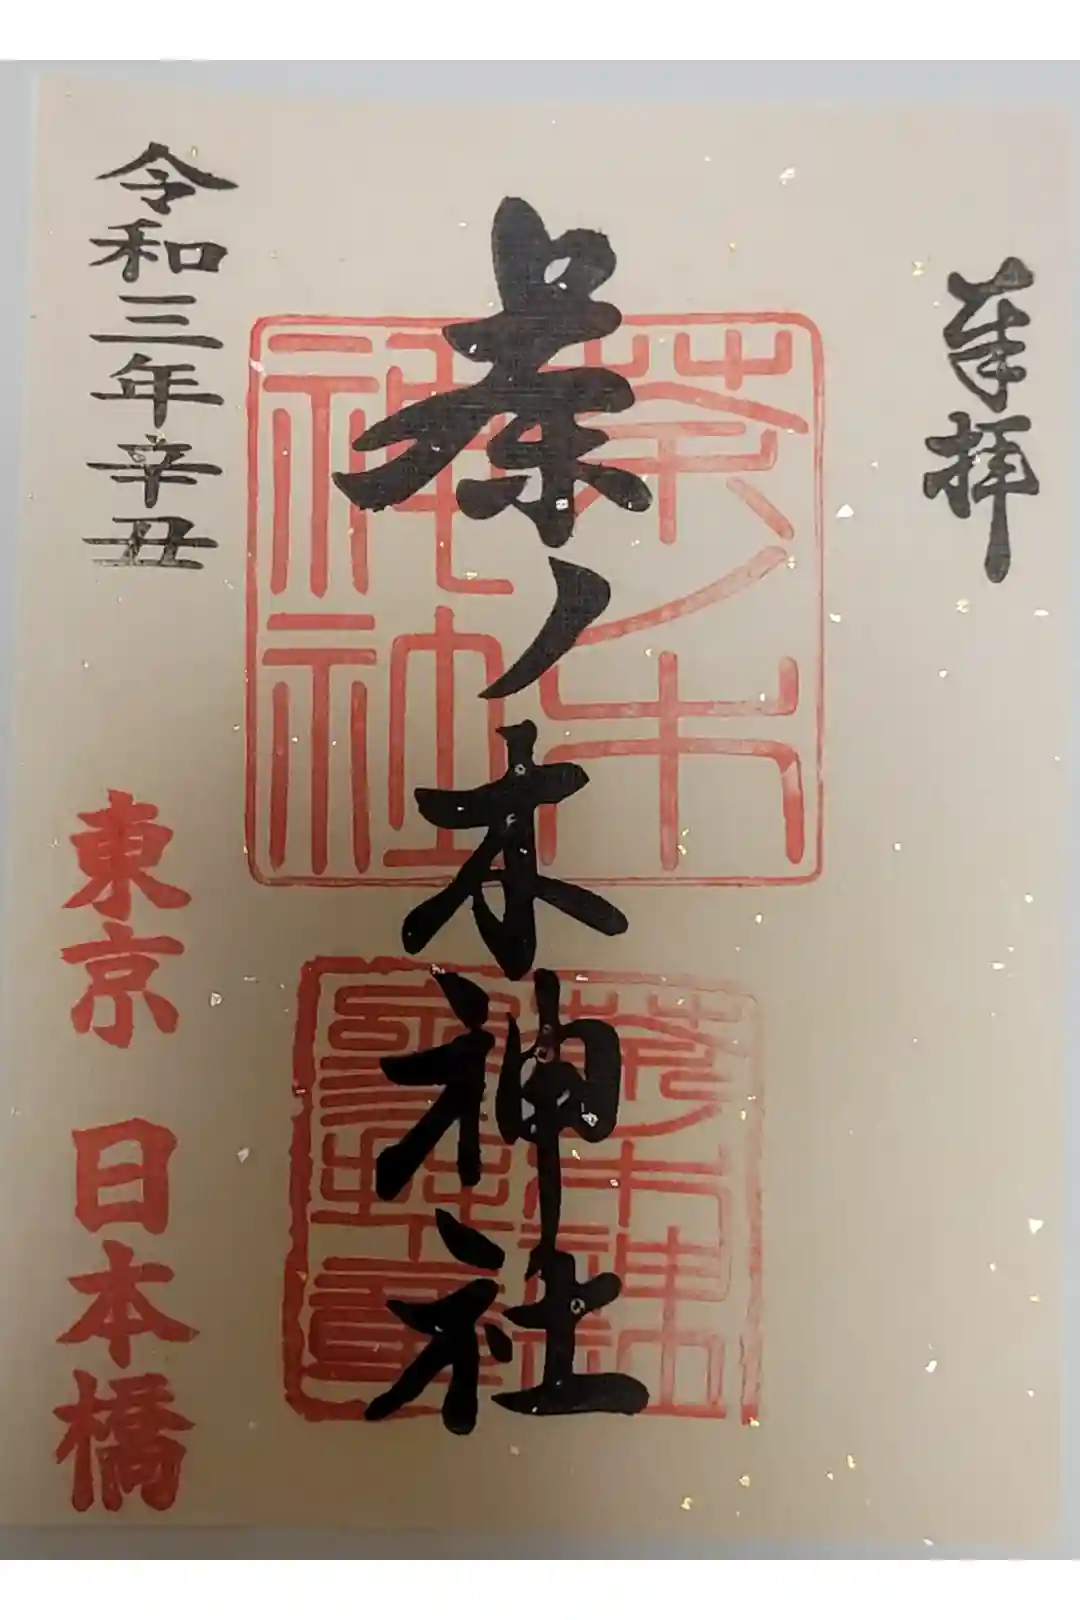 奉拝
茶ノ木神社
令和三年辛丑
東京 日本橋
茶ノ木
神社
茶ノ木神社